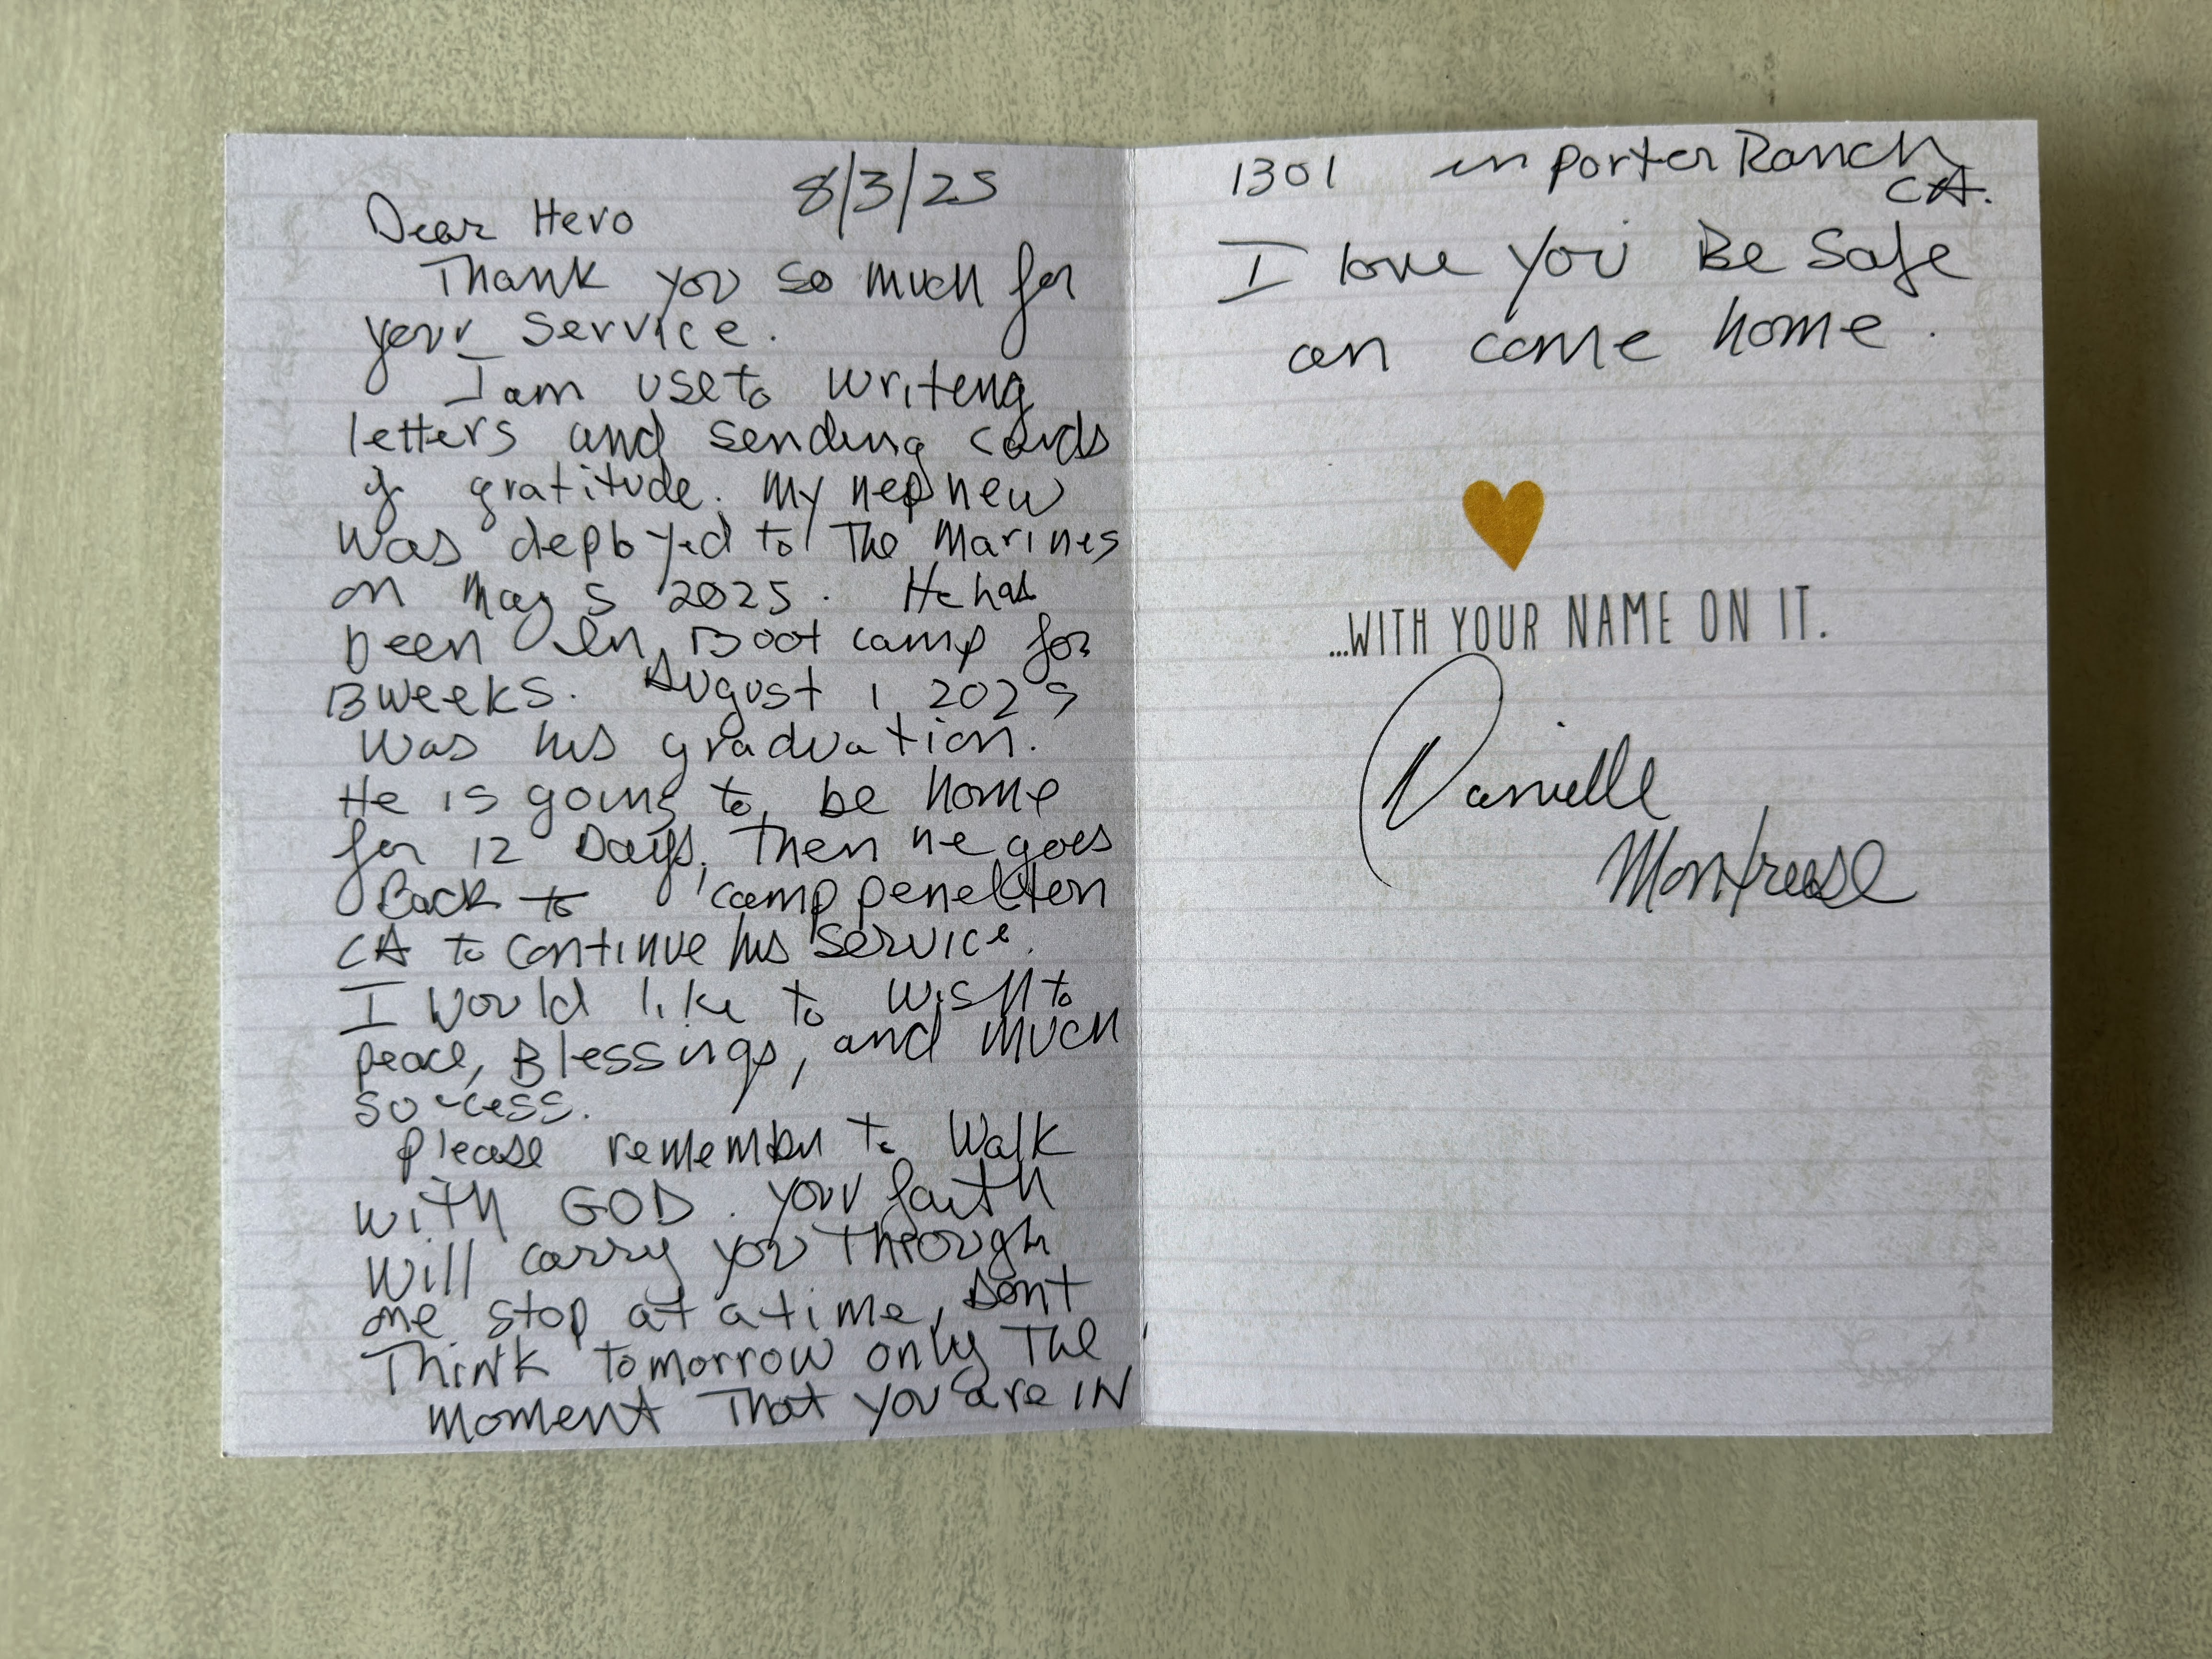 8/3/25
Dear Hero
Thank you so much for
your service.
I am use to writeng
letters and sending cards
of gratitude. My nephew
was deployed to The Marines
on May 5 2025. He has
been in Boot camp for
13 weeks. August 1, 2025
was his graduation.
He is going to be home
for 12 Days, Then he goes
Back to camp penelton
CA to continue his service.
I would like to wish to
peace, Blessings, and much
success.
please remember to walk
with GOD. your faith
will carry you Through
one stop at a time, Dont
Think tomorrow only The
moment That you are IN
1301 in porter Ranch
CA.
I love you Be Safe
an come home.
...WITH YOUR NAME ON IT.
Danielle